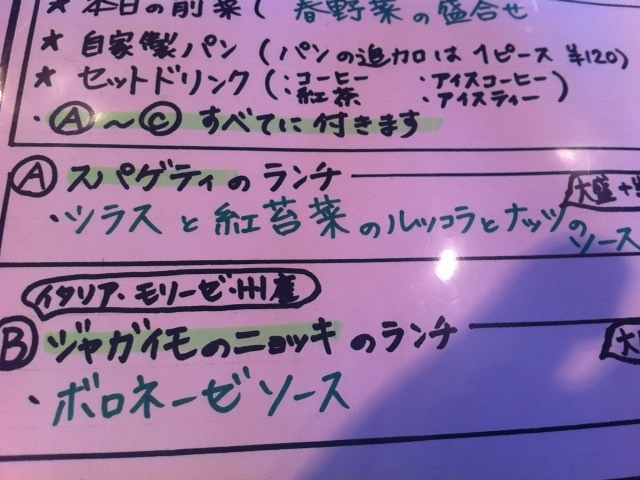 ★ 本日の前菜( 春野菜の盛合せ
★ 自家製パン (パンの追加は1ピース ¥120)
★ セットドリンク (・コーヒー ・アイスコーヒー
・紅茶 ・アイスティー)
・Ⓐ～Ⓒ すべてに付きます
Ⓐ スパゲティのランチ 大盛+
・シラスと紅苔菜のルッコラとナッツの
ソース
イタリア・モリーゼ州産
Ⓑ ジャガイモのニョッキのランチ 大
・ボロネーゼソース